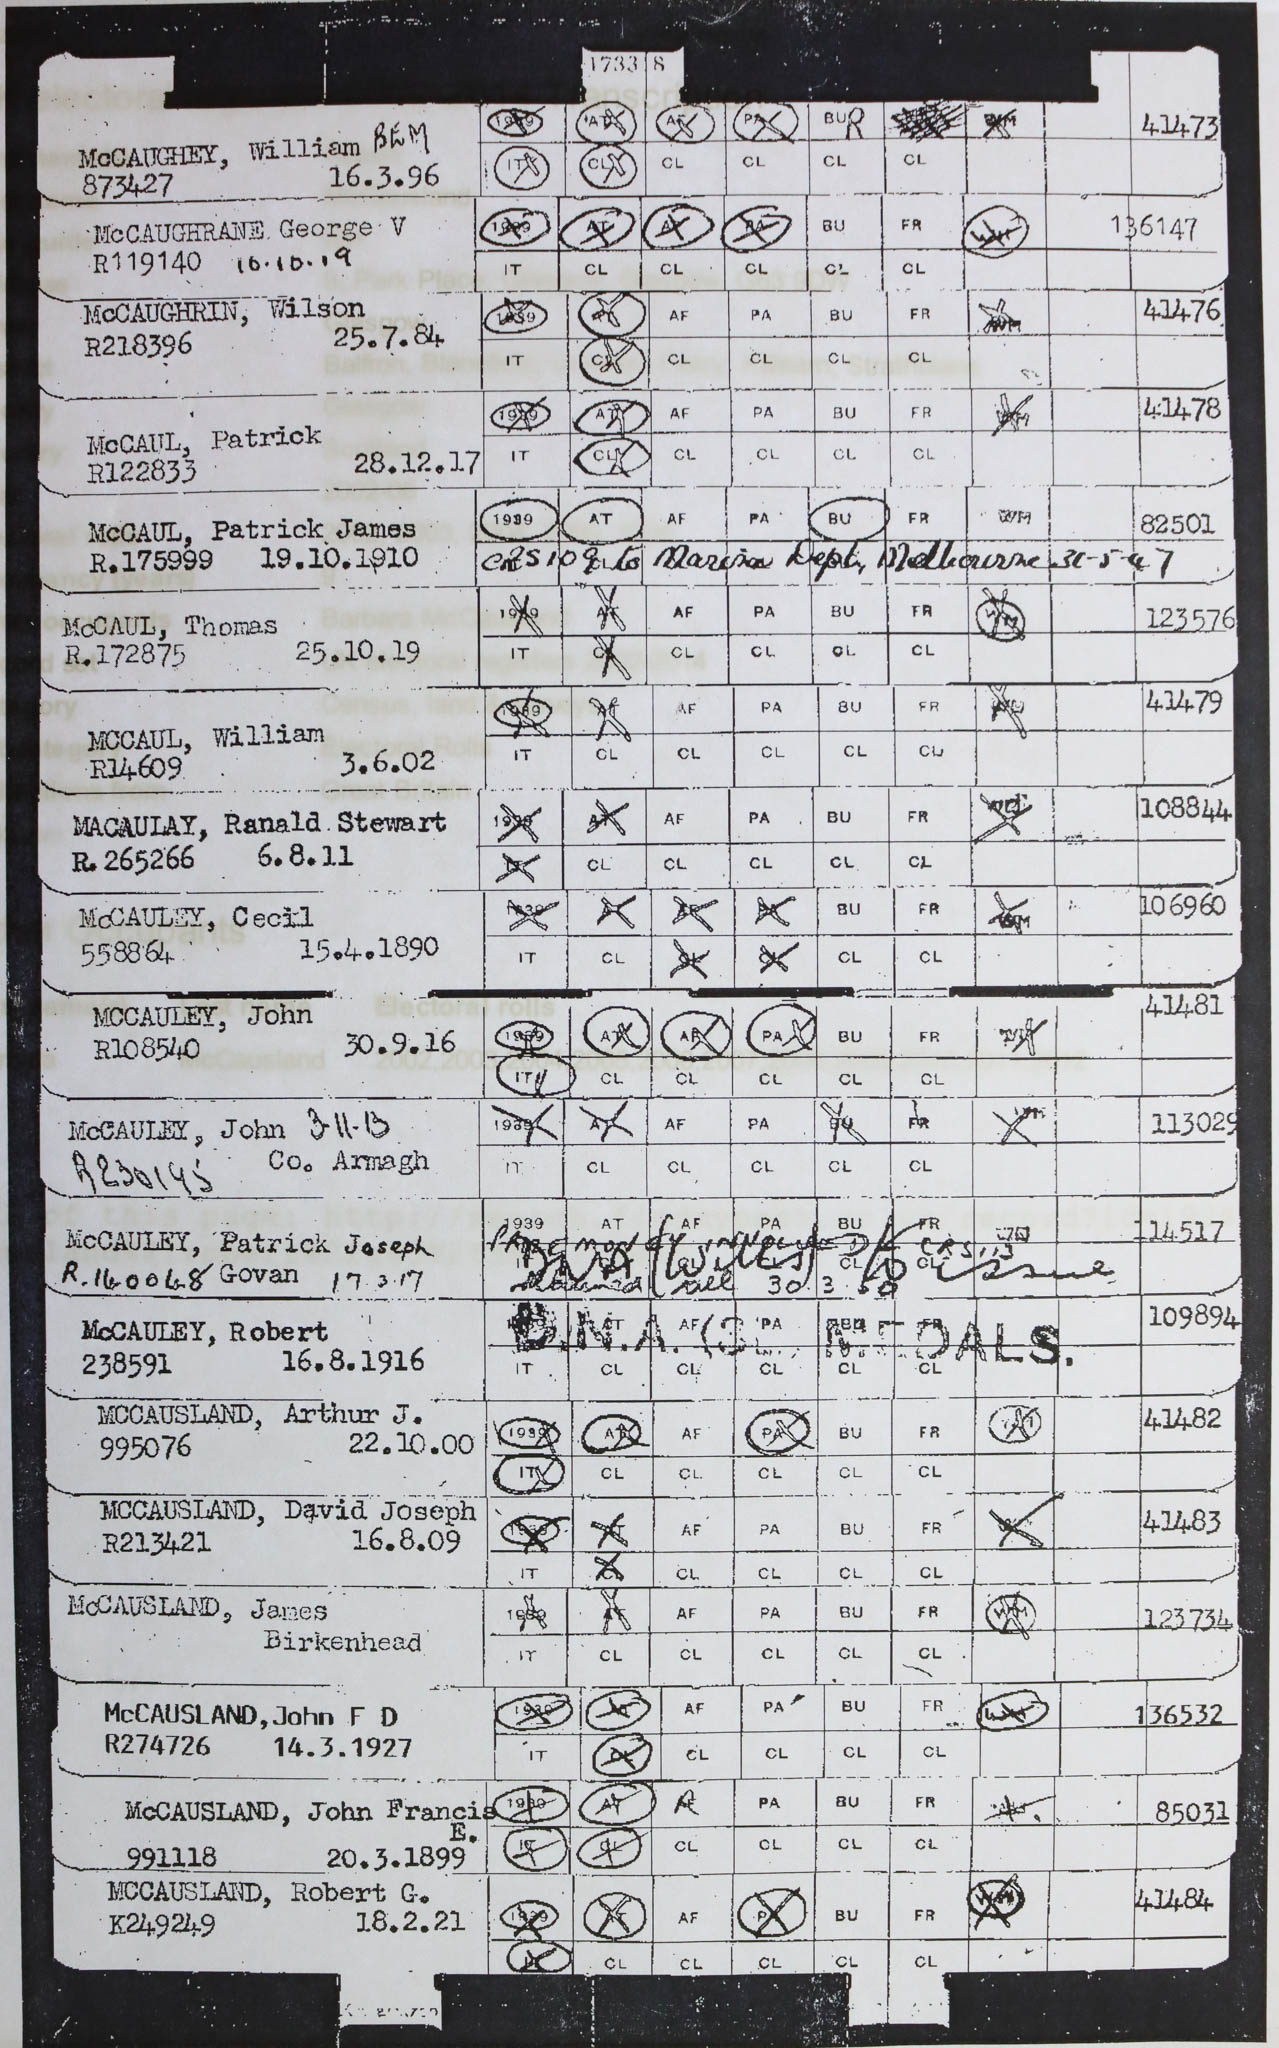 1733 8
1939 AT AF PA BU R 41473
McCAUGHEY, William BEM
873427 16.3.96
IT CL CL CL CL CL
McCAUGHRANE George V 1939 AT AF PA BU FR WM 136147
R119140 10.10.19 IT CL CL CL CL CL
McCAUGHRIN, Wilson 1939 AT AF PA BU FR WM 41476
R218396 25.7.84 IT CL CL CL CL CL
1939 AT AF PA BU FR WM 41478
McCAUL, Patrick
R122833 28.12.17 IT CL CL CL CL CL
McCAUL, Patrick James 1939 AT AF PA BU FR WM 82501
R.175999 19.10.1910 25109 to Marine Dept, Melbourne 31-5-47
McCAUL, Thomas 1939 AT AF PA BU FR WM 123576
R.172875 25.10.19 IT CL CL CL CL CL
1939 AT AF PA BU FR WM 41479
MCCAUL, William
R14609 3.6.02 IT CL CL CL CL CL
MACAULAY, Ranald Stewart 1939 AT AF PA BU FR WM 108844
R.265266 6.8.11 IT CL CL CL CL CL
McCAULEY, Cecil 1939 AT AF PA BU FR WM 106960
558864 15.4.1890 IT CL CL CL CL CL
MCCAULEY, John 1939 AT AF PA BU FR WM 41481
R108540 30.9.16 IT CL CL CL CL CL
McCAULEY, John 3-11-13 1939 AT AF PA BU FR WM 113029
R230145 Co. Armagh IT CL CL CL CL CL
1939 AT AF PA BU FR WM 114517
McCAULEY, Patrick Joseph
R.140048 Govan 17 3 17 30 3 50
McCAULEY, Robert AT AF PA BU 109894
D.N.A. (OL. MEDALS.
238591 16.8.1916 IT CL CL CL CL CL
MCCAUSLAND, Arthur J. 1939 AT AF PA BU FR 41482
995076 22.10.00 IT CL CL CL CL CL
MCCAUSLAND, David Joseph 1939 AT AF PA BU FR 41483
R213421 16.8.09 IT CL CL CL CL CL
McCAUSLAND, James 1939 AT AF PA BU FR WM 123734
Birkenhead IT CL CL CL CL CL
McCAUSLAND, John F D 1939 AT AF PA BU FR WM 136532
R274726 14.3.1927 IT CL CL CL CL CL
McCAUSLAND, John Francis 1939 AT AF PA BU FR 85031
E.
991118 20.3.1899 IT CL CL CL CL CL
MCCAUSLAND, Robert G. 1939 AT AF PA BU FR WM 41484
K249249 18.2.21
IT CL CL CL CL CL